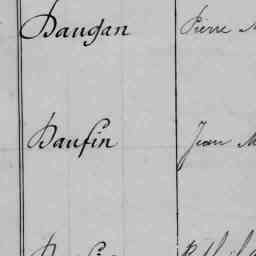 Daugan Pierre M
Daufin Jean M